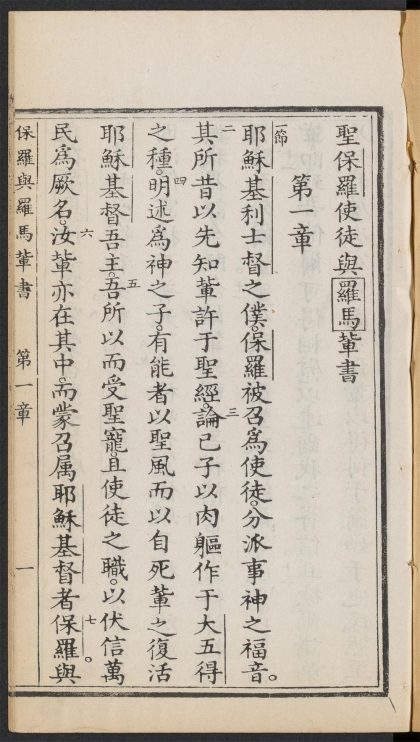 聖保羅使徒與羅馬軰書
第一章
一節
耶穌基利士督之僕。保羅被召爲使徒。分派事神之福音。
二
其所昔以先知軰許于聖經。論己子以肉軀作于大五得
三
之種。明述爲神之子。有能者以聖風而以自死軰之復活
四
耶穌基督吾主。吾所以而受聖寵。且使徒之職。以伏信萬
五
民爲厥名。汝軰亦在其中。而蒙召属耶穌基督者。保羅與
六
七
保羅與羅馬軰書 第一章 一